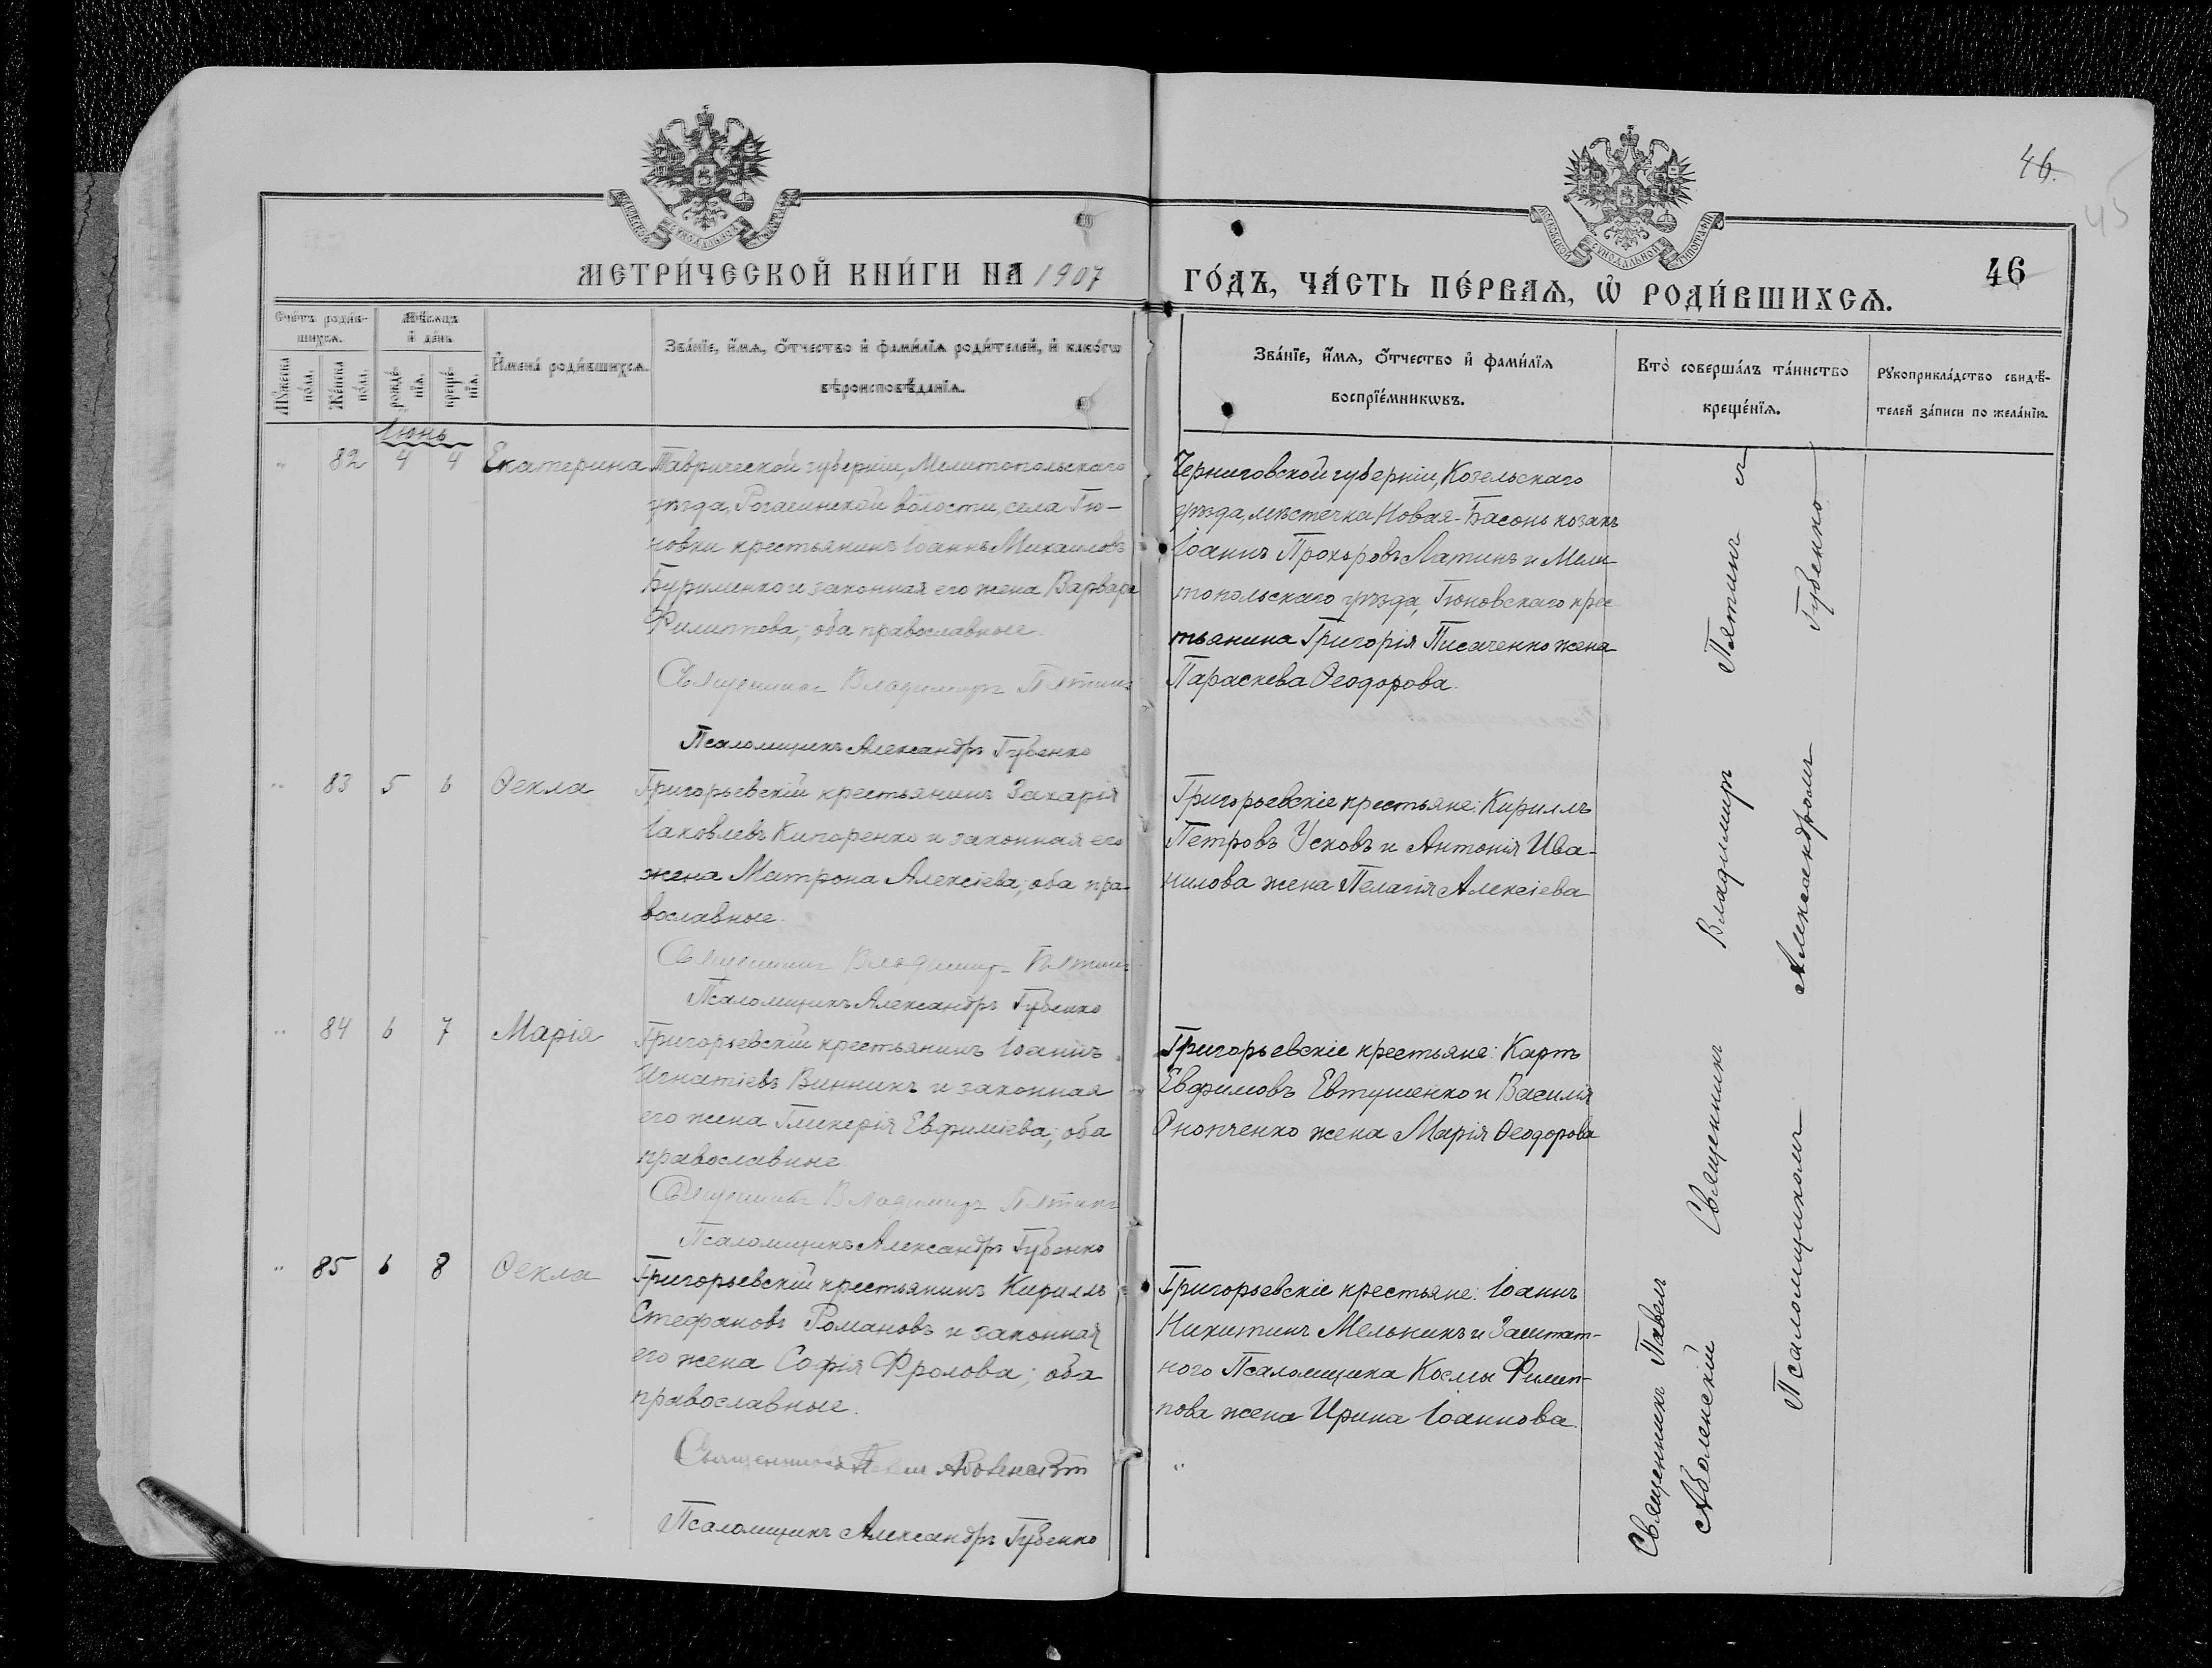 46.
45
МЕТРИ́ЧЕСКОЙ КНИ́ГИ НА 1907
ГО́ДЪ, ЧА́СТЬ ПЕ́РВАѦ, Ѿ РОДИ́ВШИХСѦ.
46
Сче́тъ роди́в-
шихсѧ.
Мꙋ́жеска по́ла.
Же́нска по́ла.
Мѣ́сѧцъ
и҆ де́нь
рожде́-
нїѧ.
креще́-
нїѧ.
И҆мена̀ роди́вшихсѧ.
Зва́нїе, и҆́мѧ, ѻ҆́тчество и҆ фами́лїѧ роди́телей, и҆ како́гѡ
вѣроисповѣ́данїѧ.
Зва́нїе, и҆́мѧ, ѻ҆́тчество и҆ фами́лїѧ
воспрїе́мникѡвъ.
Кто̀ соверша́лъ та́инство
креще́нїѧ.
Рꙋкоприкла́дство свидѣ́-
телей за́писи по жела́нїю.
Іюнь
" 82 4 4 Екатерина
Таврической губерніи, Мелитопольскаго
уѣзда, Рогачинской волости, села Гю-
новки крестьянинъ Іоаннъ Михаиловъ
Буриленко и законная его жена Варвара
Филиппова; оба православные.
Священникъ Владимиръ Пятинъ
Псаломщикъ Александръ Губенко
Черниговской губерніи, Козельскаго
уѣзда, мѣстечка Новая-Басонь козакъ
Іоаннъ Прохоровъ Латинъ и Мели
топольскаго уѣзда, Гюновскаго крес
тьянина Григорія Писаченко жена
Параскева Ѳеодорова.
" 83 5 6 Ѳекла
Григорьевскій крестьянинъ Захарія
Іаковлевъ Кипаренко и законная его
жена Матрона Алексіева; оба пра-
вославные.
Священникъ Владимиръ Пятинъ
Псаломщикъ Александръ Губенко
Григорьевскіе крестьяне: Кириллъ
Петровъ Усковъ и Антонія Ива-
нилова жена Пелагія Алексіева
" 84 6 7 Марія
Григорьевскій крестьянинъ Іоаннъ
Игнатіевъ Винникъ и законная
его жена Гликерія Евфиміева; оба
православные.
Священникъ Владимиръ Пятинъ
Псаломщикъ Александръ Губенко
Григорьевскіе крестьяне: Карпъ
Евфимовъ Евтушенко и Василія
жена Марія Ѳеодорова
" 85 6 8 Ѳекла
Григорьевскій крестьянинъ Кириллъ
Стефановъ Романовъ и законная
его жена Софія Фролова; оба
православные.
Священникъ Павелъ
Псаломщикъ Александръ Губенко
Григорьевскіе крестьяне: Іоаннъ
Никитинъ Мельникъ и Заштат-
ного Псаломщика Космы Филип-
пова жена Ирина Іоаннова.
"
Священникъ Владимиръ Пятинъ съ
Псаломщикомъ Александромъ Губенко
Священникъ Павелъ